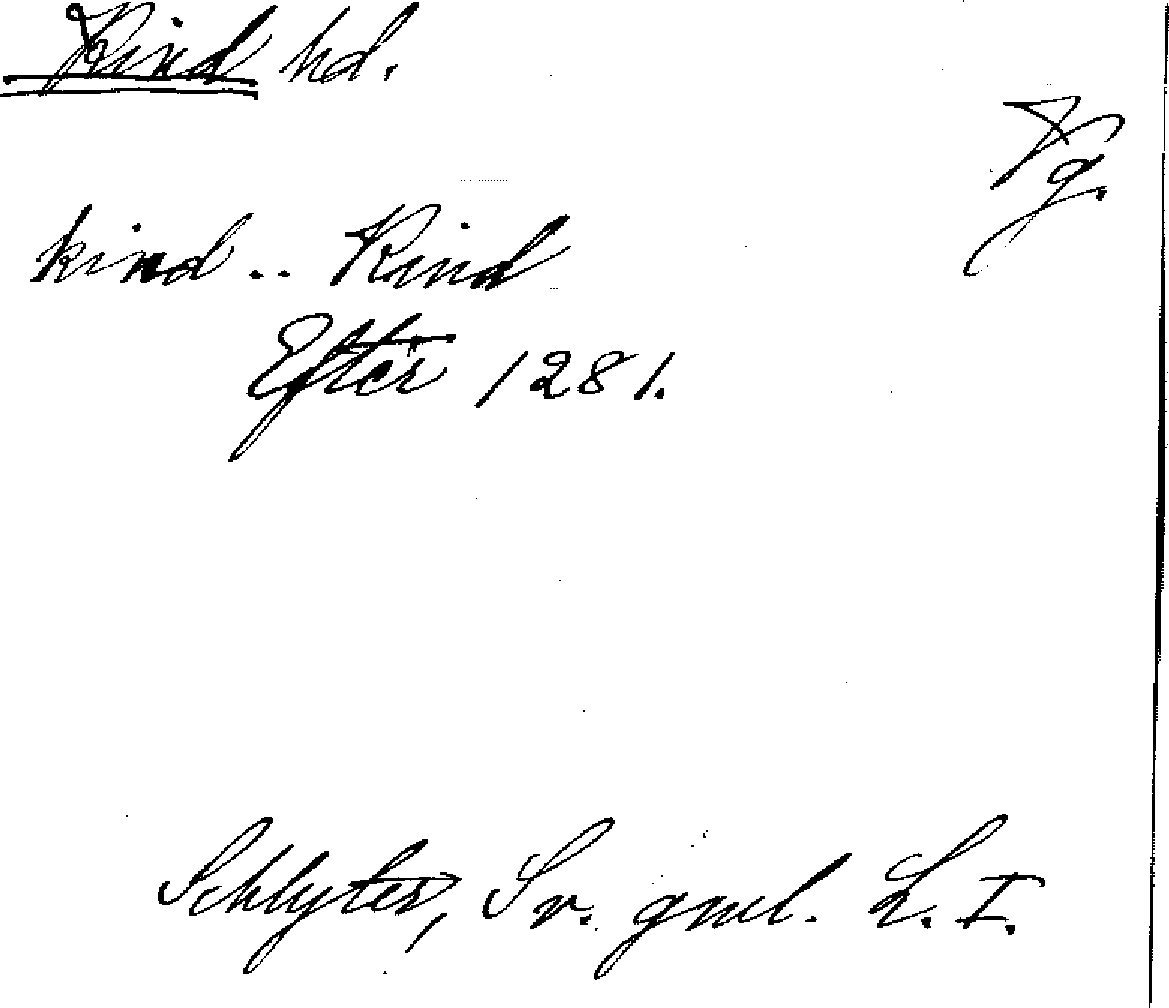 Kind hd.
Vg.
kind .. Kind
Efter 1281.
Schlyter, Sv. gml. L. I.